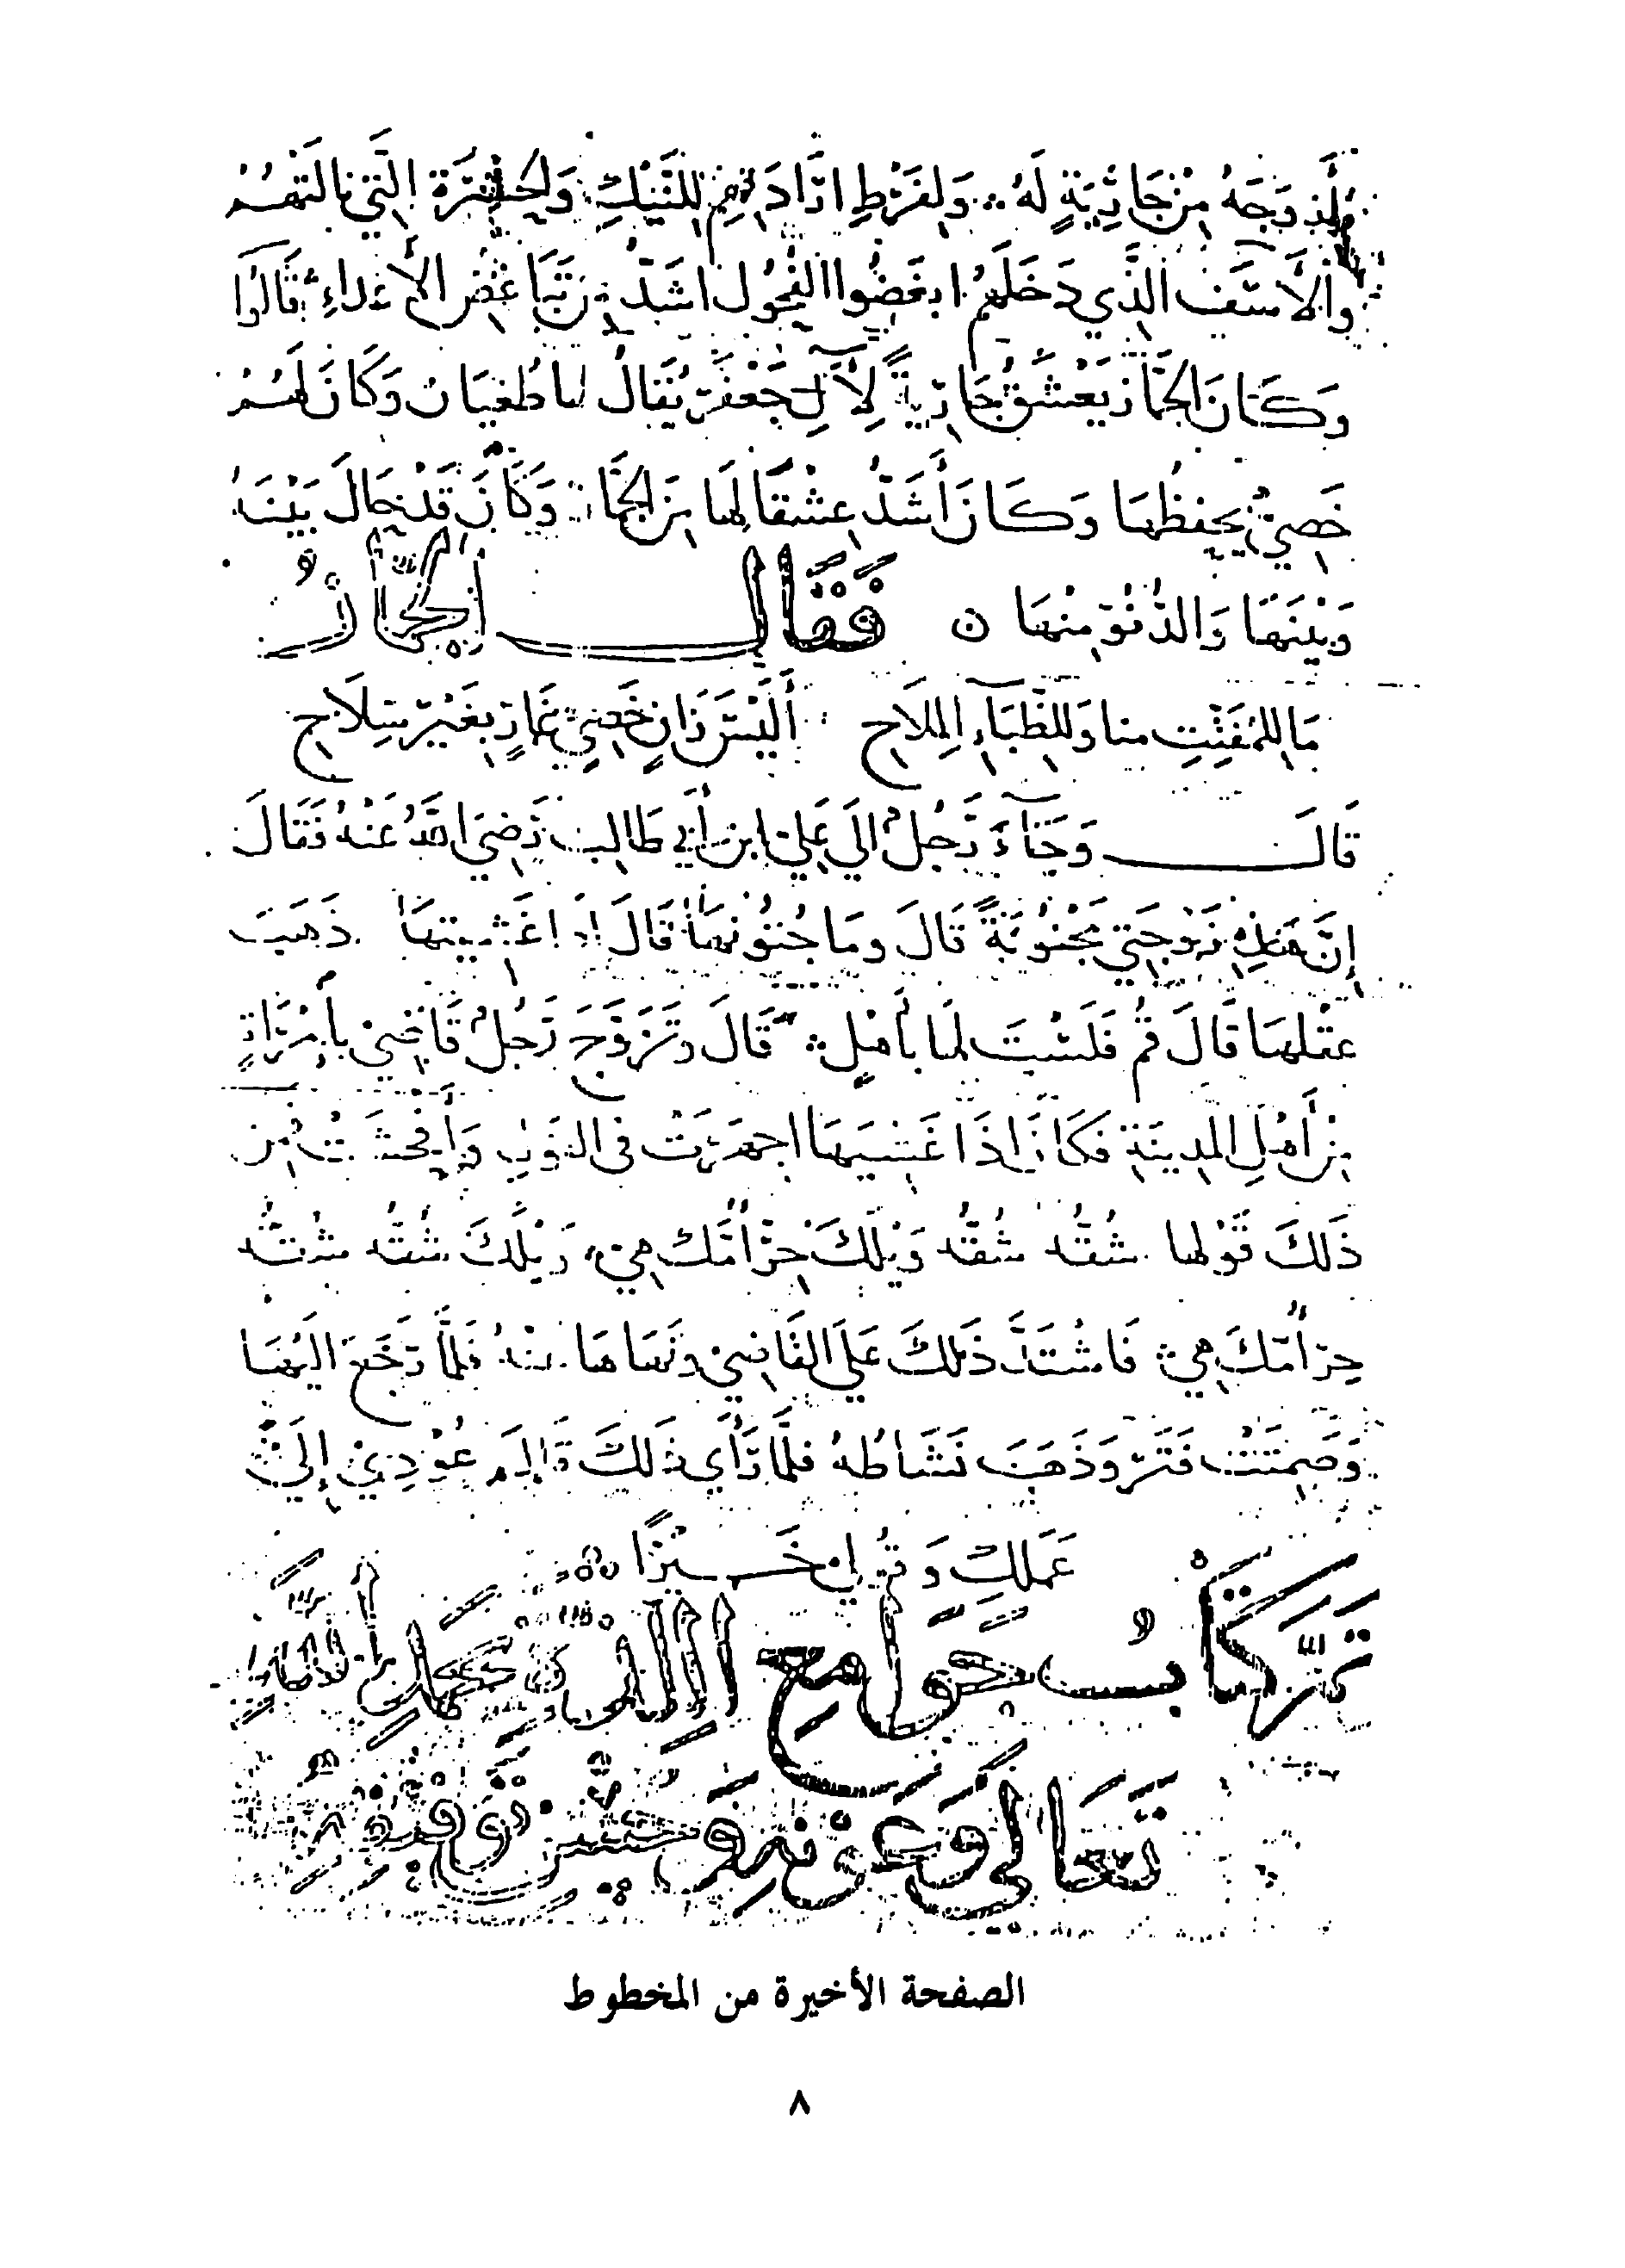 ولزوجه من جارية له ولفرط ارادتهم للنيك وللحسرة التي نالتهم
والأسف الذي دخلهم ابغضوا الفحول اشد من تباغض الأعداء قالوا
وَكَانَ الجمّاز يَعْشَقُ جَارِيَةً لِآلِ جَعْفَر يُقَالُ لها طُغْيَان وَكَانَ لَهُم
خَصِيٌّ يحفظُها وَكَانَ أَشَدَّ عِشْقًا لَهَا مِنَ الجمَّاز وَكَانَ قَدْ حَالَ بَيْنَهُ
وَبَيْنَهَا وَالدُّنُوِّ مِنْهَا ن فَقَال الجمَّازُ
مَا لِلمُقَيّتِ منا وَللظِّبَآءِ المِلَاحِ أَلَيْسَ زَانٍ خَصِيٌّ غَازٍ بِغَيْرِ سِلَاحِ
قَالَ وَجَآءَ رَجُلٌ الى عَلِيّ ابن أَبي طالب رَضِيَ اللهُ عَنْهُ فَقَالَ
إِنَّ هَذِهِ زَوْجَتِي مَجْنُونَةً قَالَ وَمَا جُنُونُهَا قَالَ اذا غَشِيتهَا ذَهَبَ
عقلها قَالَ قُمْ فَلَسْتَ لَهَا بأَهْلٍ قَالَ وتَزَوَّجَ رَجُلٌ قَاضِي بأمْرَاةٍ
مِنْ أَهْلِ المدِينَةِ فكَانَ اذَا غَشِيَهَا اجهرَت في القول وَأَفْحَشَتْ مِن
ذَلَكَ قَوْلها شُقّهُ شُقّهُ وَيْلَكَ حِرُ امِّك هِي وَيْلَكَ شُقّهُ شُقّهُ
حِر امّكَ هِي فَاشْتَدَّ ذَلكَ عَلَى القَاضِي ونَهَاهَا عنهُ فَلمَّا رَجَعَ اليهَا
وَصَمَتَتْ فَتَر وَذَهَبَ نَشَاطُهُ فلمَّا رَأَى ذلكَ قَالَ عُودِي إِلَى
عَمَلكِ وَ خَيْرًا
تَمَّ كِتَابُ جَوَامِع اللّذّة بحمد الله
تَعَالى وَعَوْنِهِ وَحُسْنِ تَوْفِيقِهِ
الصفحة الأخيرة من المخطوط
٨